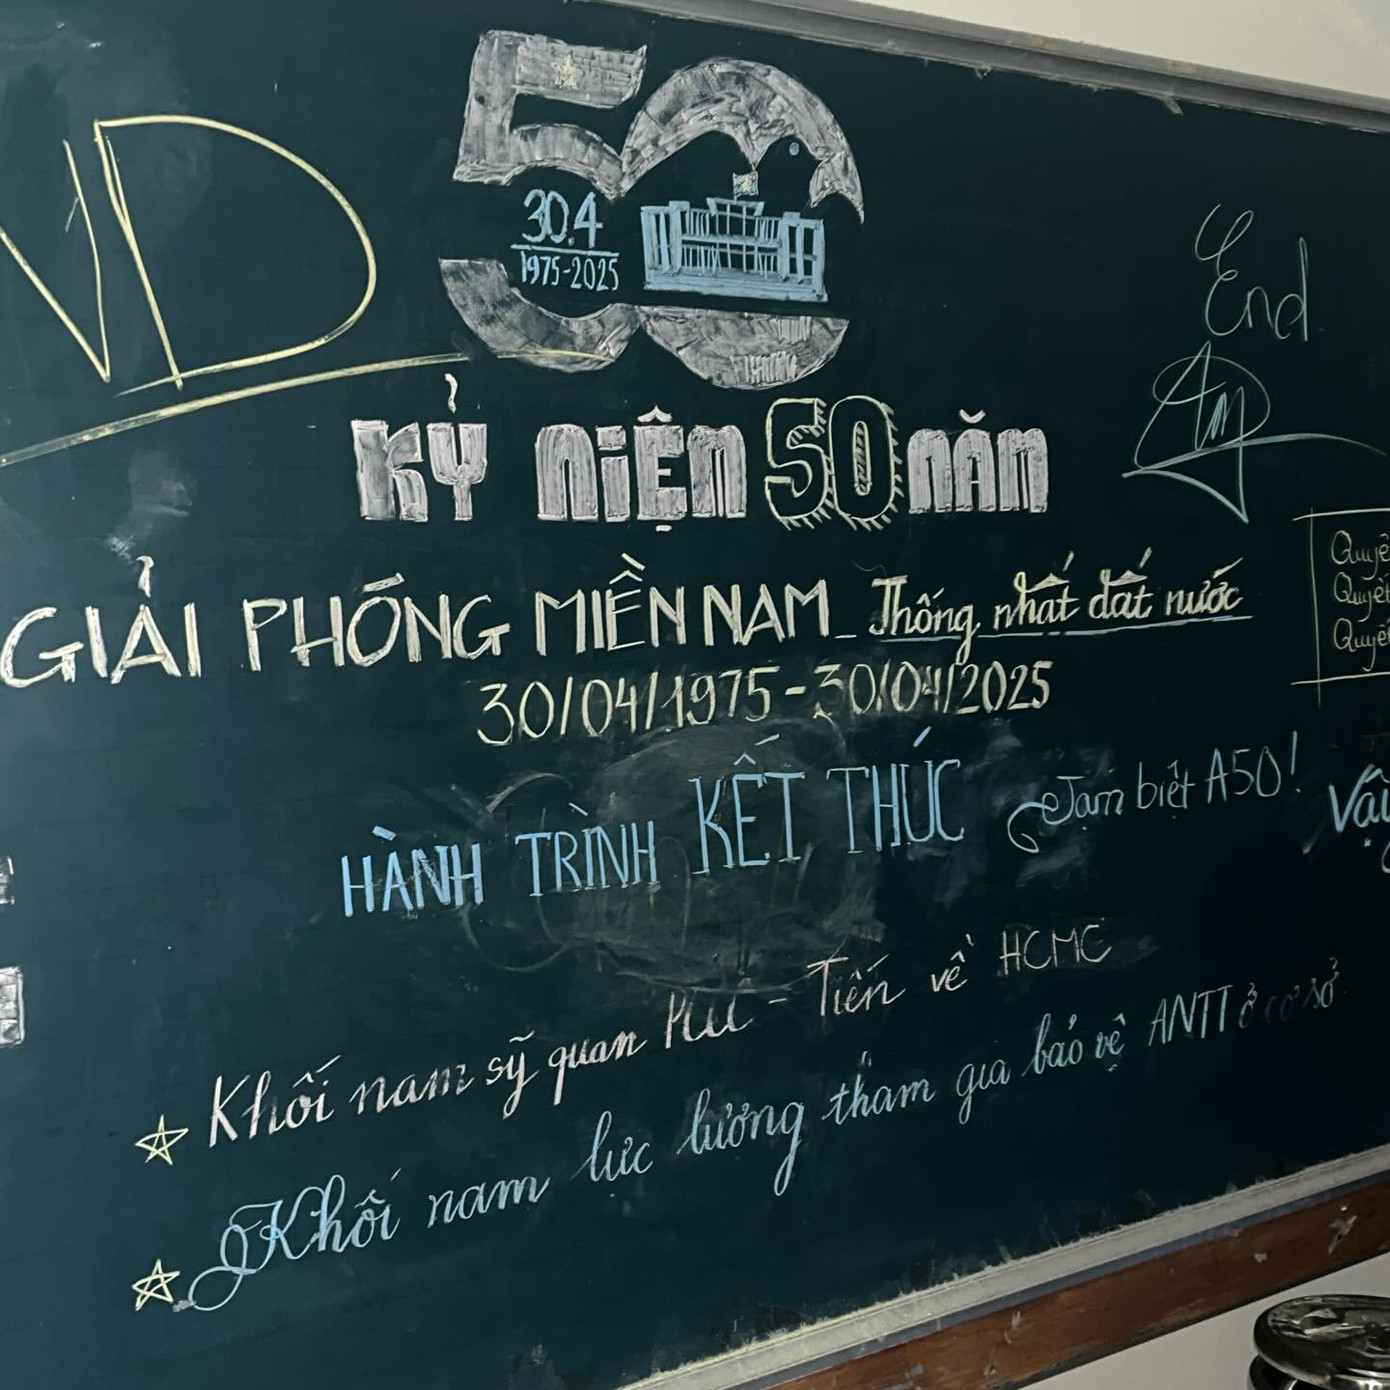 VD
50
30.4
1975-2025
End
KỶ NIỆM 50 NĂM
GIẢI PHÓNG MIỀN NAM - Thống nhất đất nước
30/04/1975-30/04/2025
HÀNH TRÌNH KẾT THÚC
Tạm biệt A50!
Khối nam sỹ quan - Tiến về HCMC
Khối nam lực lượng tham gia bảo vệ ANTT ở cơ sở